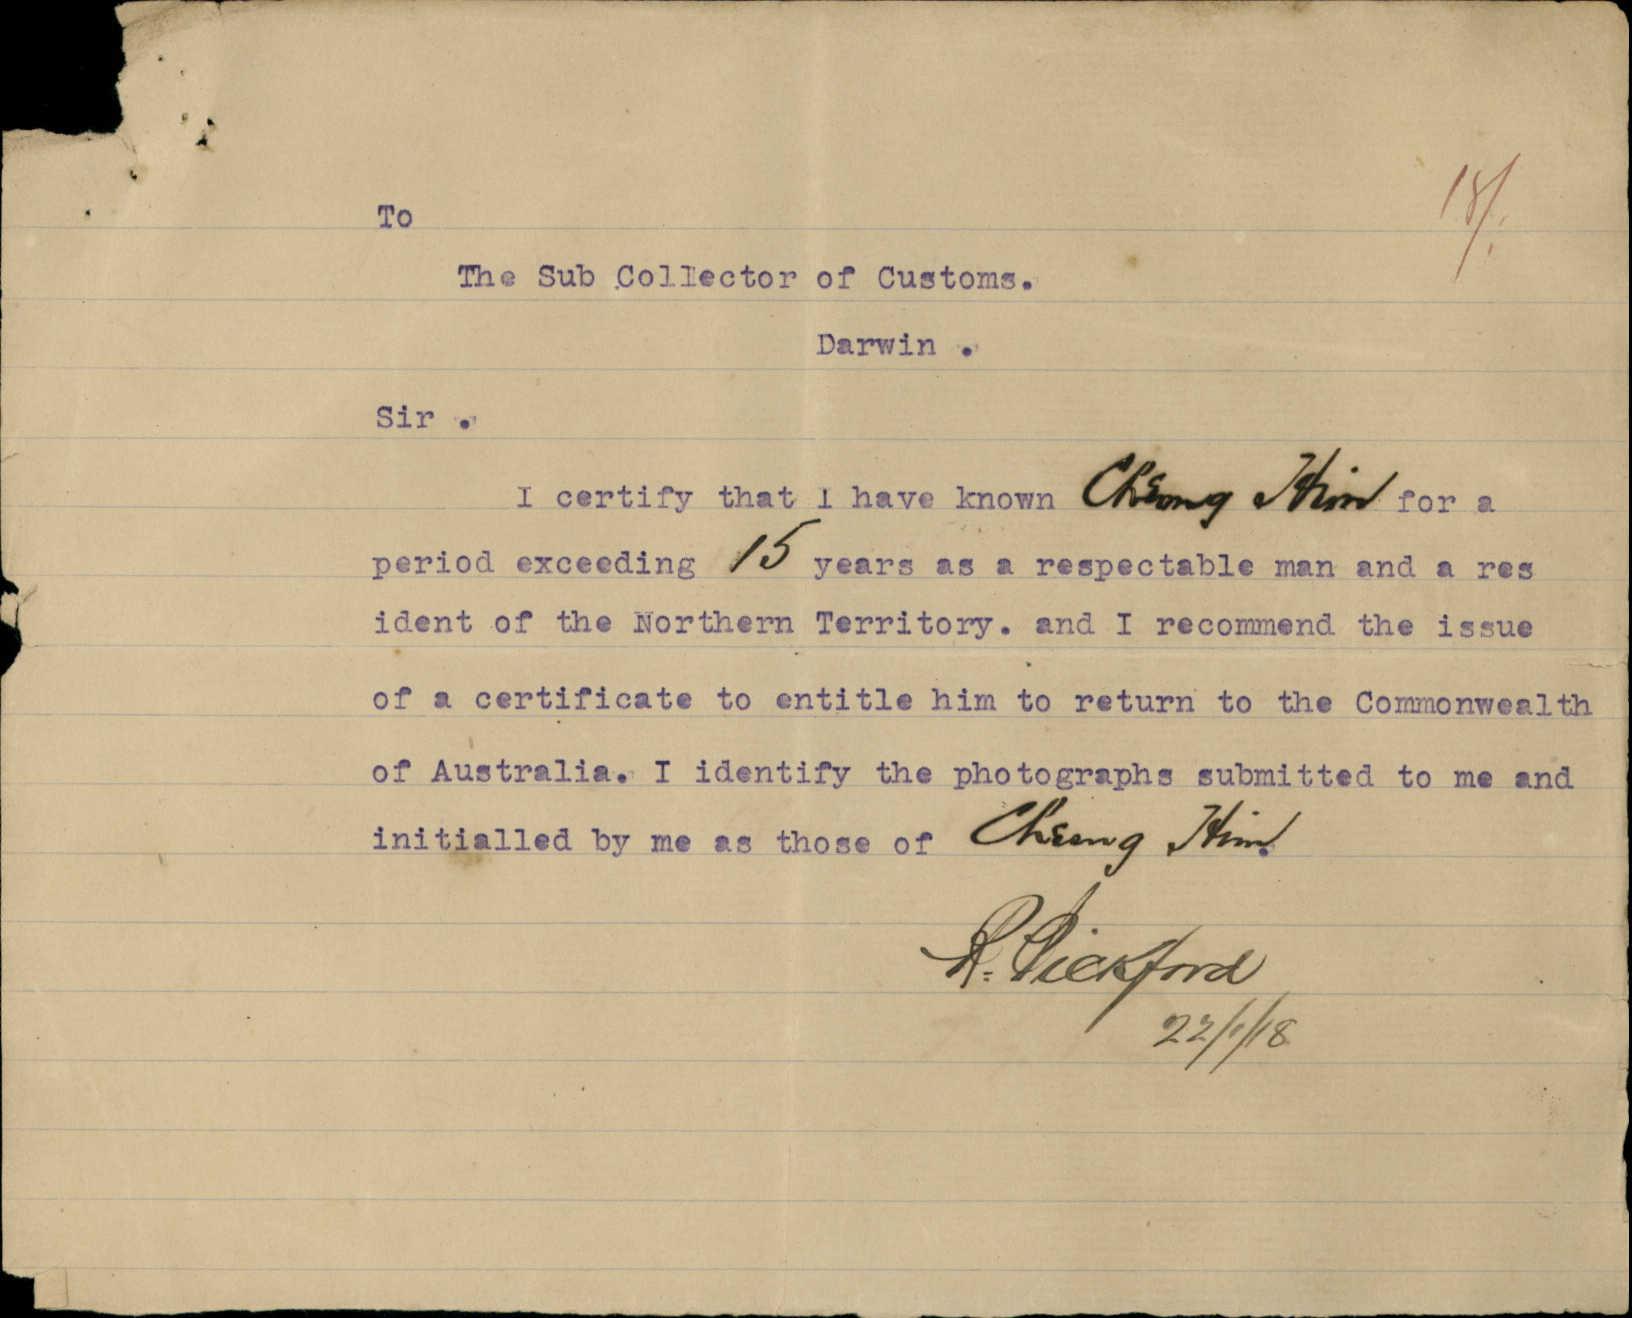 18/.
To
The Sub Collector of Customs.
Darwin .
Sir .
I certify that I have known Cheong Him for a
period exceeding 15 years as a respectable man and a res
ident of the Northern Territory. and I recommend the issue
of a certificate to entitle him to return to the Commonwealth
of Australia. I identify the photographs submitted to me and
initialled by me as those of Cheong Him.
R. Pickford
22/1/18